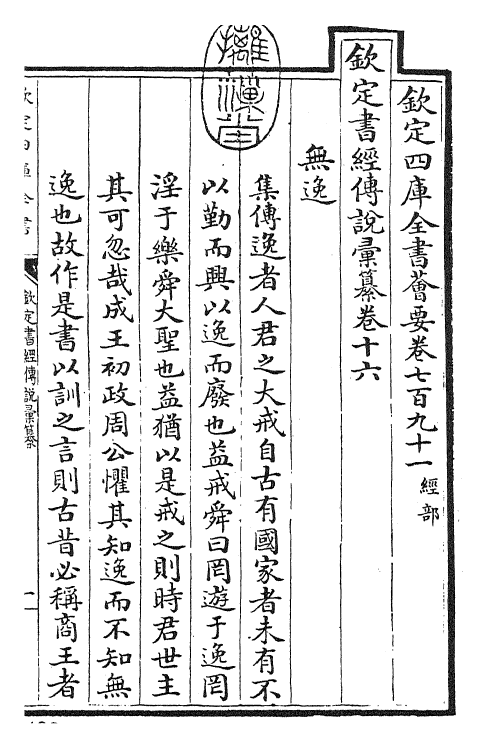 欽定四庫全書薈要卷七百九十一 經部
欽定書經傳說彚纂卷十六
無逸
集傳逸者人君之大戒自古有國家者未有不
以勤而興以逸而廢也益戒舜曰罔遊于逸罔
淫于樂舜大聖也益猶以是戒之則時君世主
其可忽哉成王初政周公懼其知逸而不知無
逸也故作是書以訓之言則古昔必稱商王者
欽定書經傳說彚纂